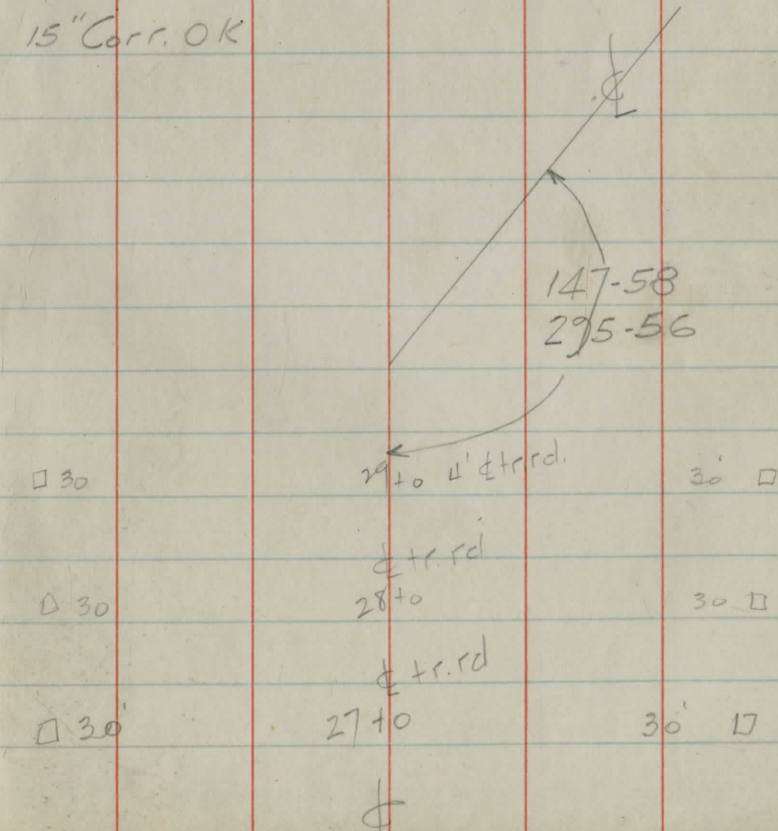 15" Corr. OK
℄
147-58
295-56
□ 30 29+0 4' ℄ tr.rd. 30' □
℄ tr.rd
□ 30 28+0 30 □
℄ tr.rd
□ 30' 27+0 30' □
℄